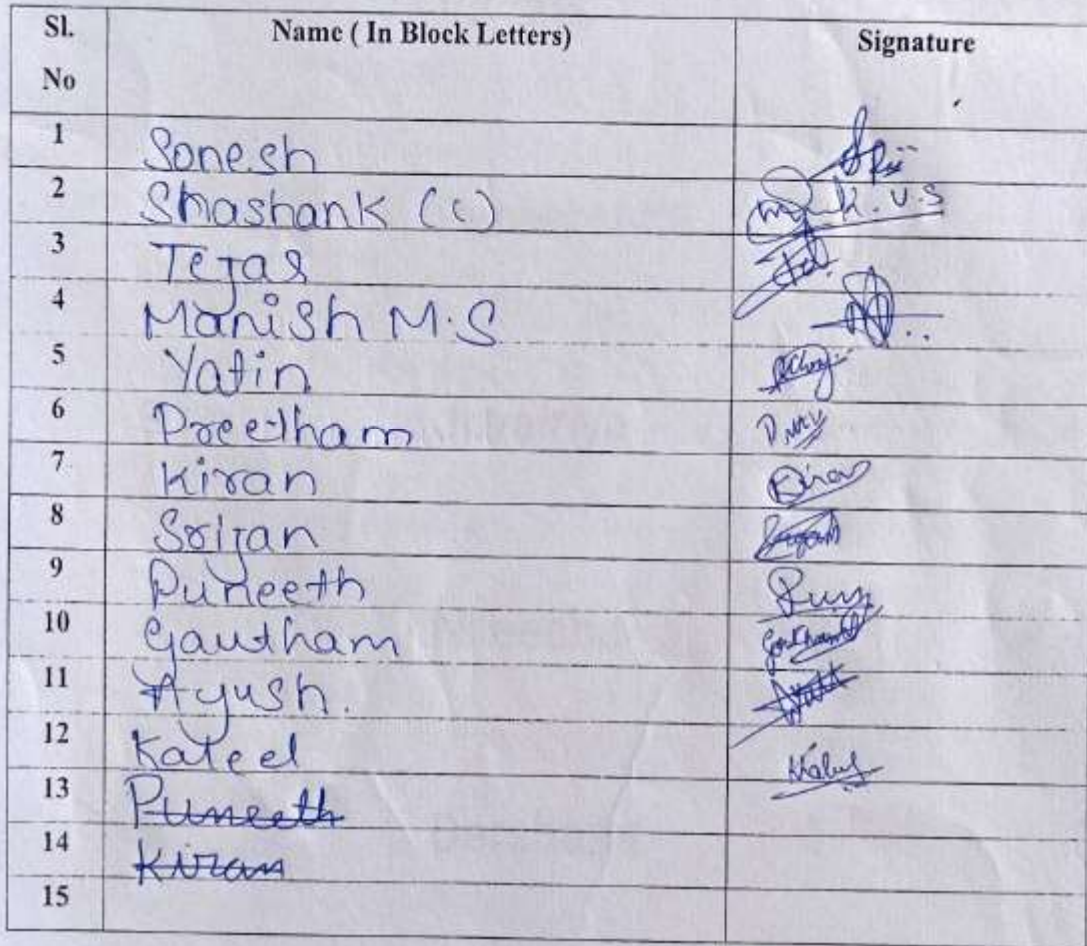 Sl. No Name ( In Block Letters) Signature
1 Sonesh
2 Shashank (c) K.U.S
3 Tejas
4 Manish M.S
5 Yatin
6 Preetham
7 Kiran Kiran
8 Srijan Srijan
9 Puneeth
10 Gautham Gautham
11 Ayush.
12 Kateel
13 Puneeth
14 Kiran
15